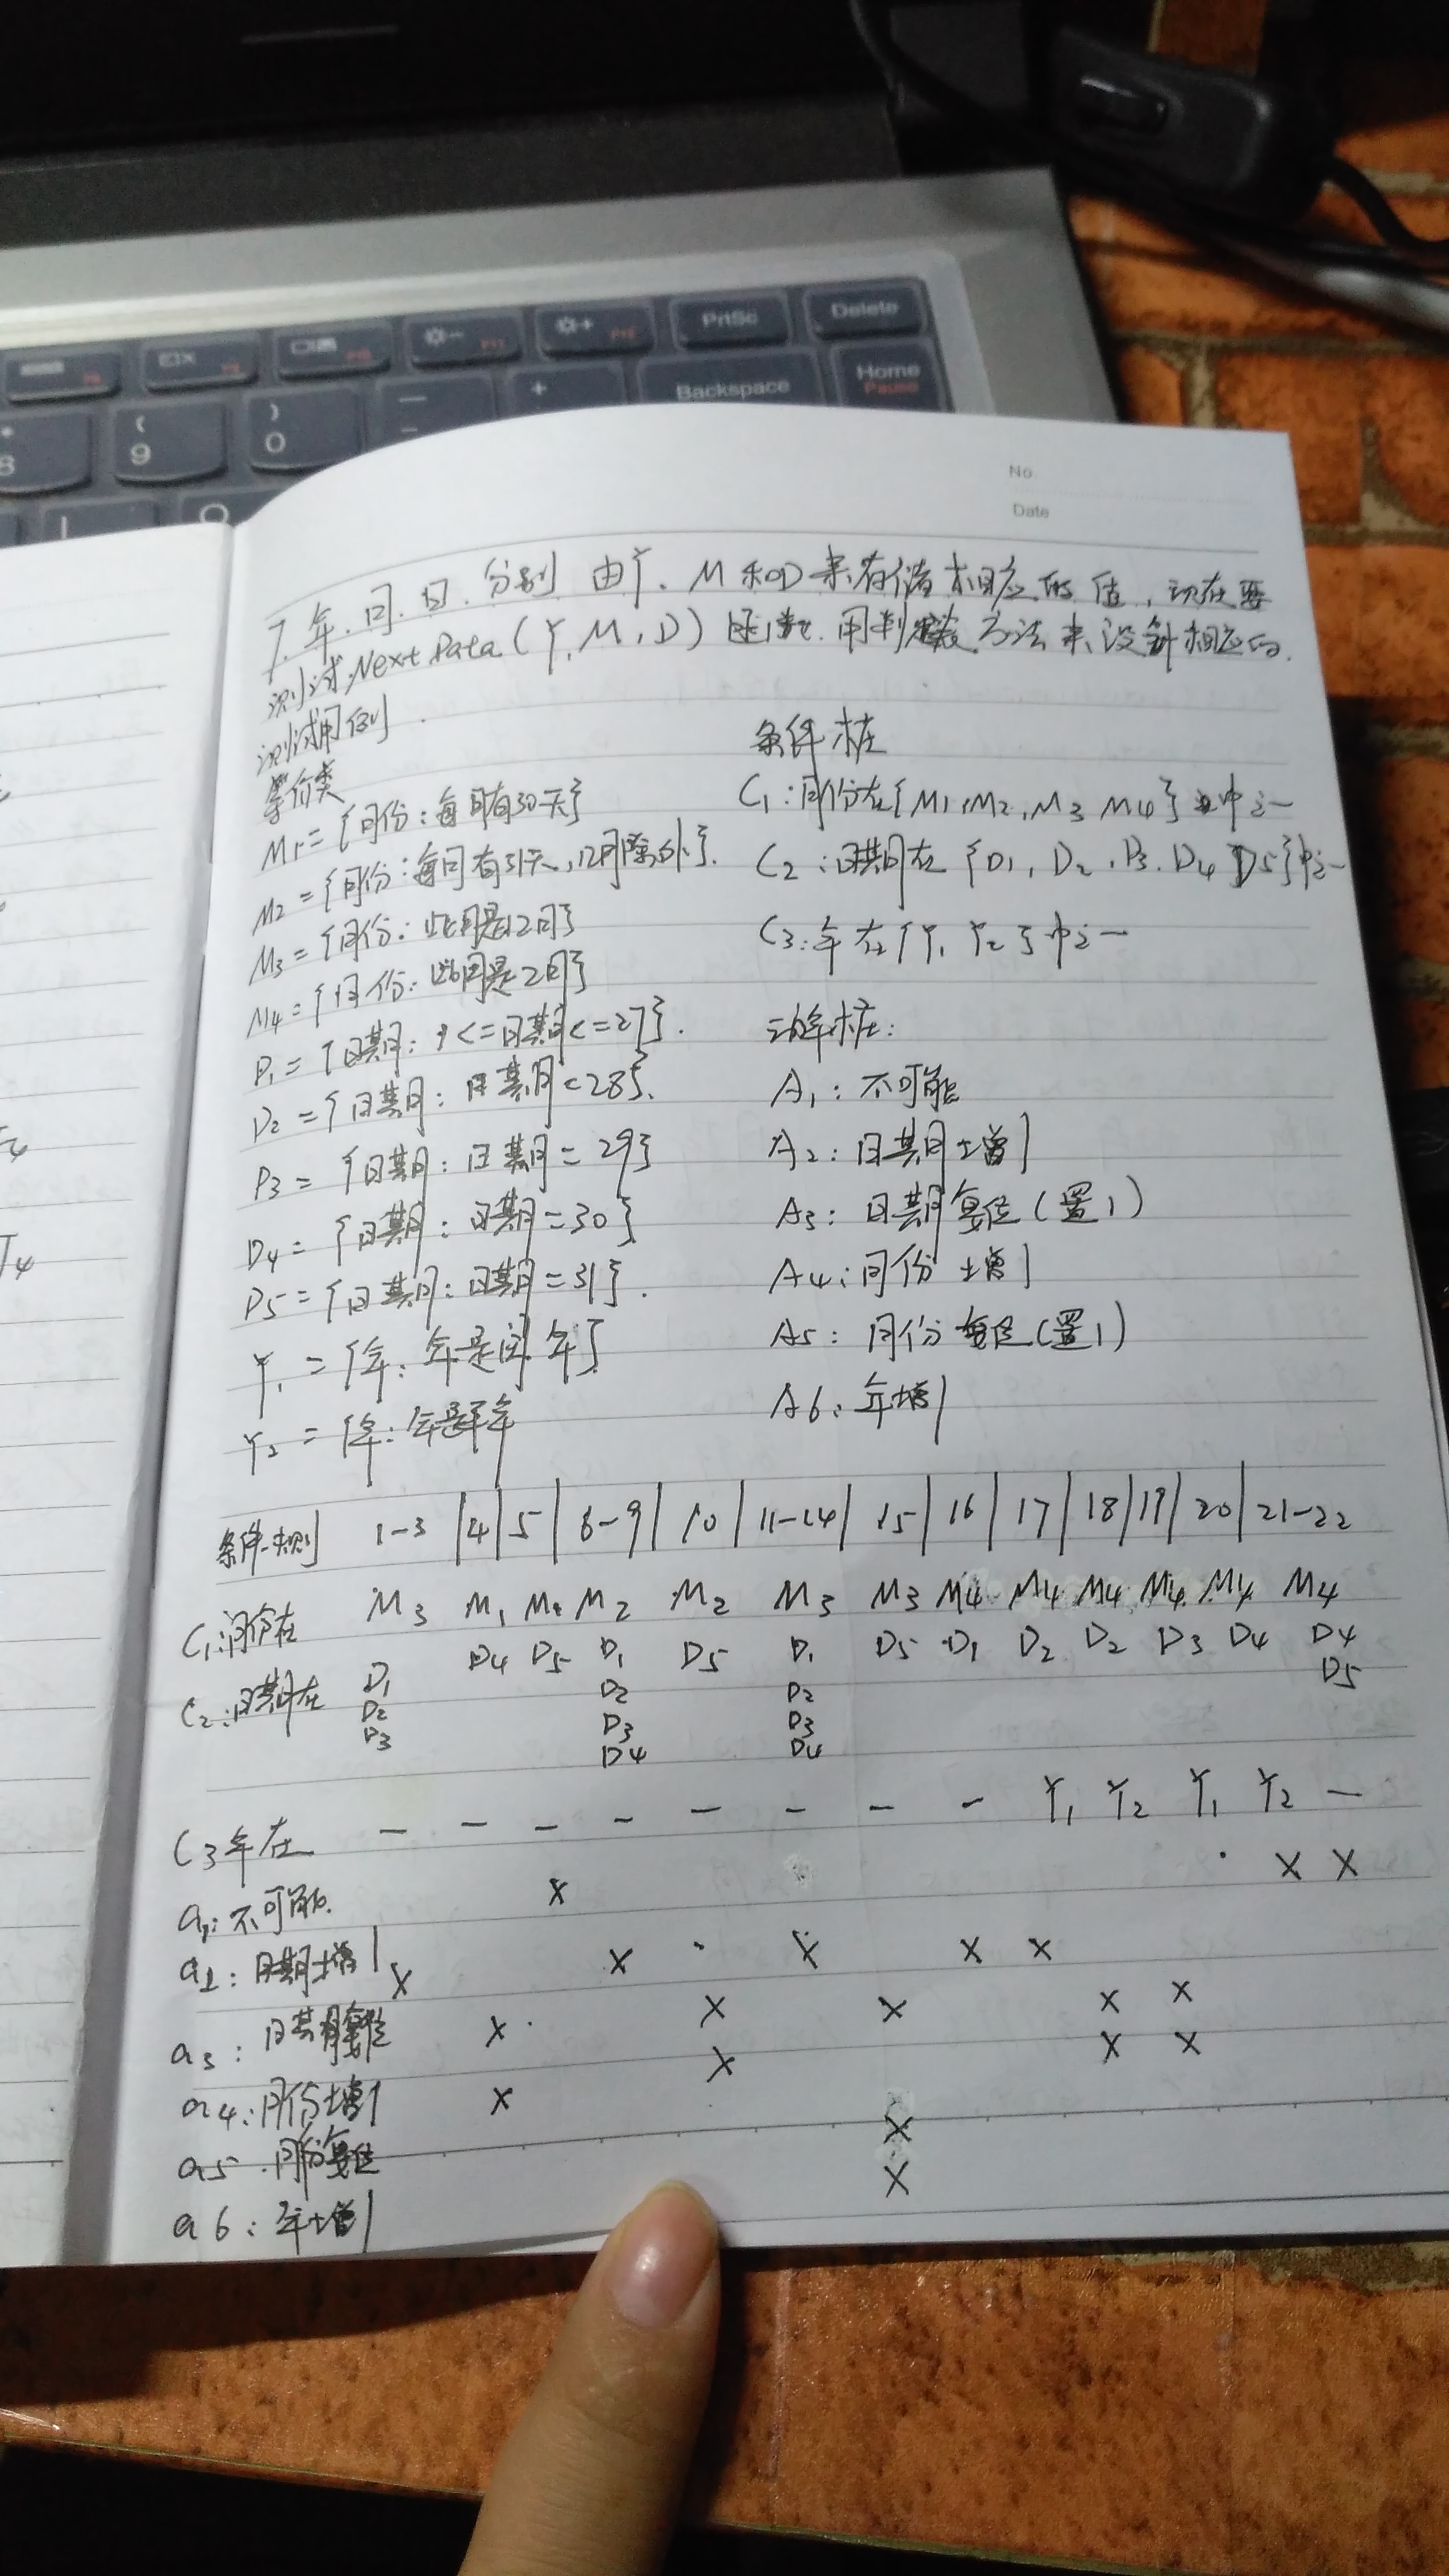 PrtSc
Delete
Backspace
Home
Pause
8
( 9
) 0
No.
Date
7. 年.月.日.分别 由Y. M 和D来存储相应的值，现在要
测试NextData(Y,M,D)函数.用判定表方法来设计相应的.
测试用例
等价类
M1={月份：每月有30天}
M2={月份：每月有31天，12月除外}.
M3={月份：此月是12月}
M4={月份：此月是2月}
D1={日期：1<=日期<=27}.
D2={日期：日期<28}.
D3={日期：日期=29}
D4={日期：日期=30}
D5={日期：日期=31}.
Y1={年：年是闰年}
Y2={年：年是平年
条件桩
C1：月份在{M1,M2,M3 M4}中之一
C2：日期在{D1, D2, D3. D4 D5}中之一
C3：年在{Y1 Y2}中之一
动作桩：
A1：不可能
A2：日期增1
A3：日期复位(置1)
A4：月份增1
A5：月份复位(置1)
A6：年增1
条件规则 1-3 4 5 6-9 10 11-14 15 16 17 18 19 20 21-22
C1:月份在 M3 M1 M1 M2 M2 M3 M3 M4 M4 M4 M4 M4 M4
C2:日期在 D1 D4 D5 D1 D5 D1 D5 D1 D2 D2 D3 D4 D4
D2 D2 D2 D5
D3 D3 D3
D4 D4
C3年在 — — — — — — — — Y1 Y2 Y1 Y2 —
a1:不可能. X X X
a2:日期增1 X X X X X
a3:日期复位 X X X X X
a4:月份增1 X X X X
a5.月份复位 X
a6:年增1 X